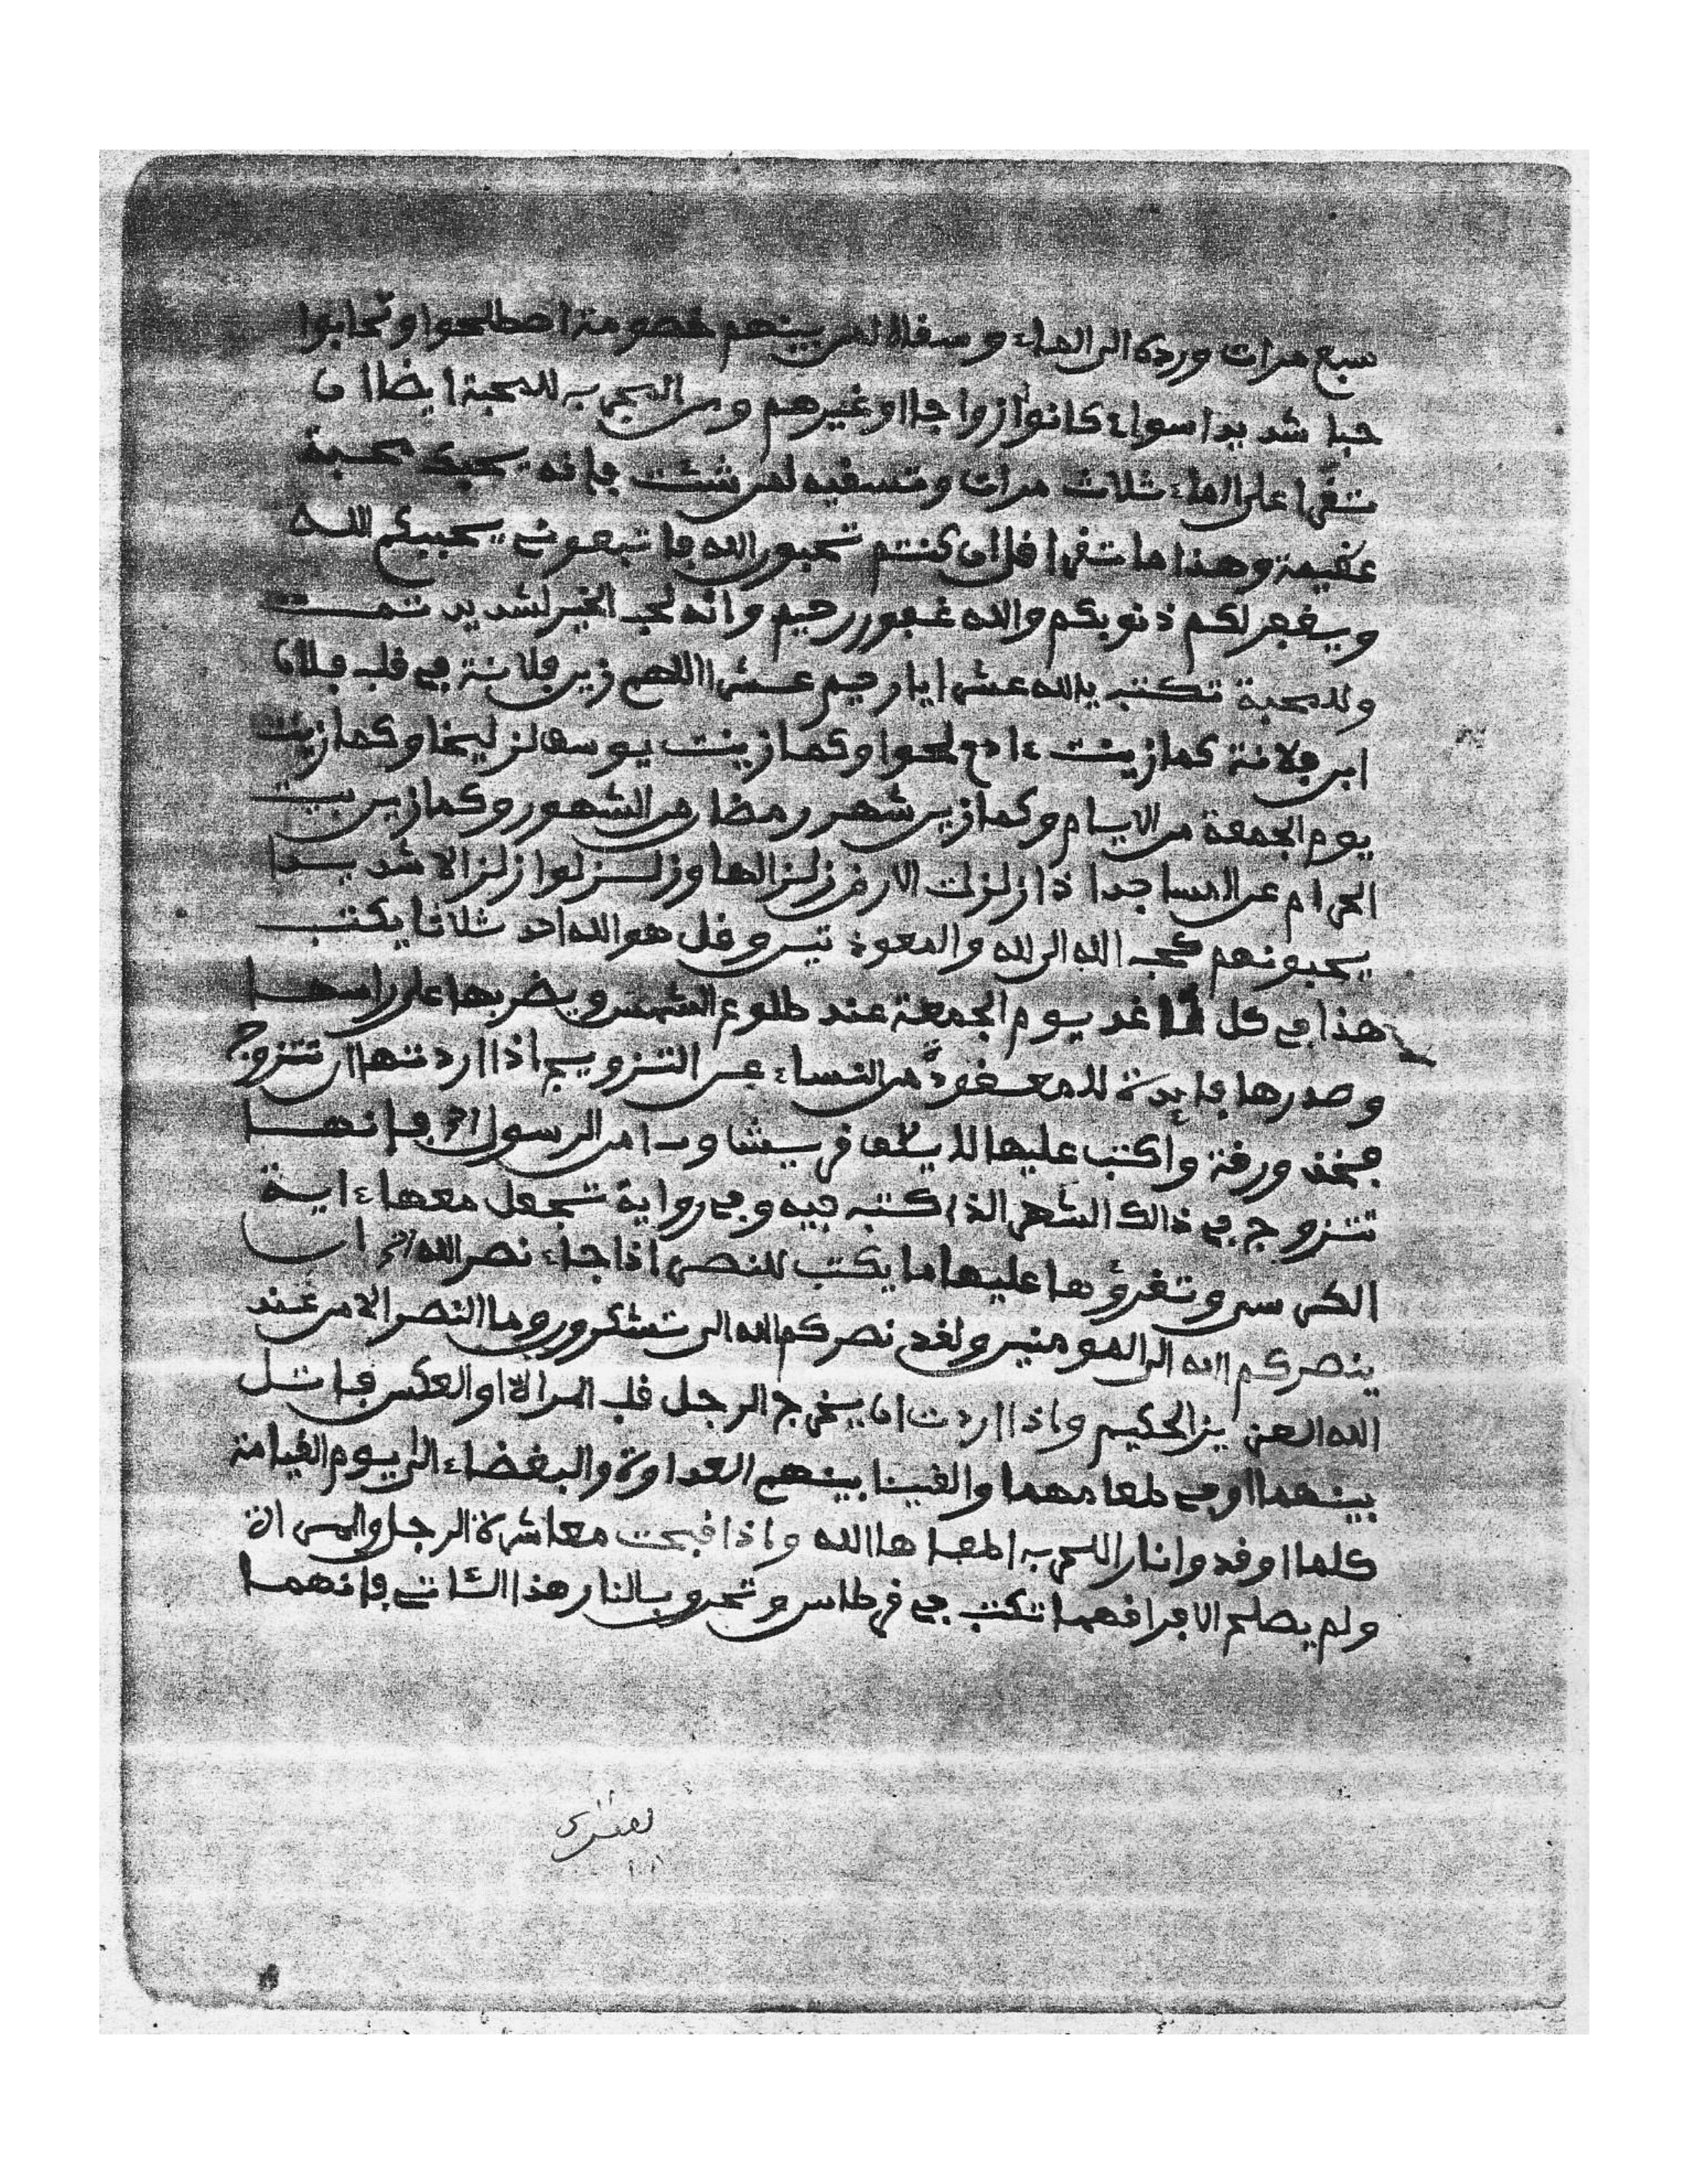 سبع مرات ورده الى الماء وسقاه لمن بينهم خصومة اصطلحوا وتحابوا
حبا شديدا سواء كانوا أزواجا او غيرهم ومن المجرب للمحبة ايضا ان
تقرا على الماء ثلاث مرات وتسقيه لمن شئت فإنه يحبك محبة
عقيمة وهذا ما تقرا قل ان كنتم تحبون الله فاتبعوني يحببكم الله
ويغفر لكم ذنوبكم والله غفور رحيم وانه لحب الخير لشديد تمت
وللمحبة تكتب يالله عشرا يا رحيم عشرا اللهم زين فلانة في قلب فلان
ابن فلانة كما زينت ءادم لحوا وكما زينت يوسف لزليخا وكما زينت
يوم الجمعة من الايام وكما زين شهر رمضان من الشهور وكما زين بيت
الحرام عن المساجد اذا زلزلت الارض زلزالها وزلزلوا زلزالا شديدا
يحبونهم كحب الله الى لله والمعوذتين وقل هو الله احد ثلاثا يكتب
هذا في كل غد يوم الجمعة عند طلوع الشمس ويضربها على راسها
وصدرها فايدة للمعقودة من النساء عن التزويج اذا اردتها ان تتزوج
فخذ ورقة وأكتب عليها لايلف قريش وءامن الرسول الخ فإنها
تتزوج في ذالك الشهر الذي كتبه فيه وفي رواية تجعل معها ءاية
الكرسي وتقرؤها عليها ما يكتب للنصر اذا جاء نصر الله الخ ان
ينصركم الله الى المومنين ولقد نصركم الله الى تشكرون وما النصر الا من عند
الله العزيز الحكيم وإذا اردت ان يخرج الرجل قلب المراة او العكس فاتل
بينهما او في طعامهما والقينا بينهم العداوة والبغضاء الى يوم القيامة
كلما اوقدوا نارا للحرب اطفاها الله وإذا قبحت معاشرة الرجل والمراة
ولم يصلح الا فراقهما تكتب في قرطاس وتحرق بالنار هذا الشاتي فإنهما